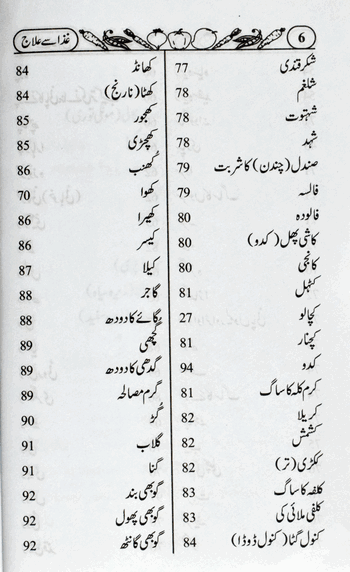 غذا سے علاج
6
شکر قندی 77
شلغم 78
شہتوت 78
شہد 78
صندل (چندن) کا شربت 79
فالسہ 79
فالودہ 80
کاشی پھل (کدو) 80
کانجی 80
کٹہل 81
کچالو 27
کچنار 81
کدو 94
کرم کلہ کا ساگ 81
کریلا 82
کشمش 82
ککڑی (تر) 82
کلفہ کا ساگ 83
کلفی ملائی کی 83
کنول گٹا (کنول ڈوڈا) 84
کھانڈ 84
کھٹا (نارنج) 84
کھجور 85
کھچڑی 85
کھنب 86
کھوا 70
کھیرا 86
کیسر 86
کیلا 87
گاجر 88
گائے کا دودھ 88
گچھی 89
گدھی کا دودھ 89
گرم مصالحہ 89
گڑ 90
گلاب 91
گنا 91
گوبھی بند 92
گوبھی پھول 92
گوبھی گانٹھ 92